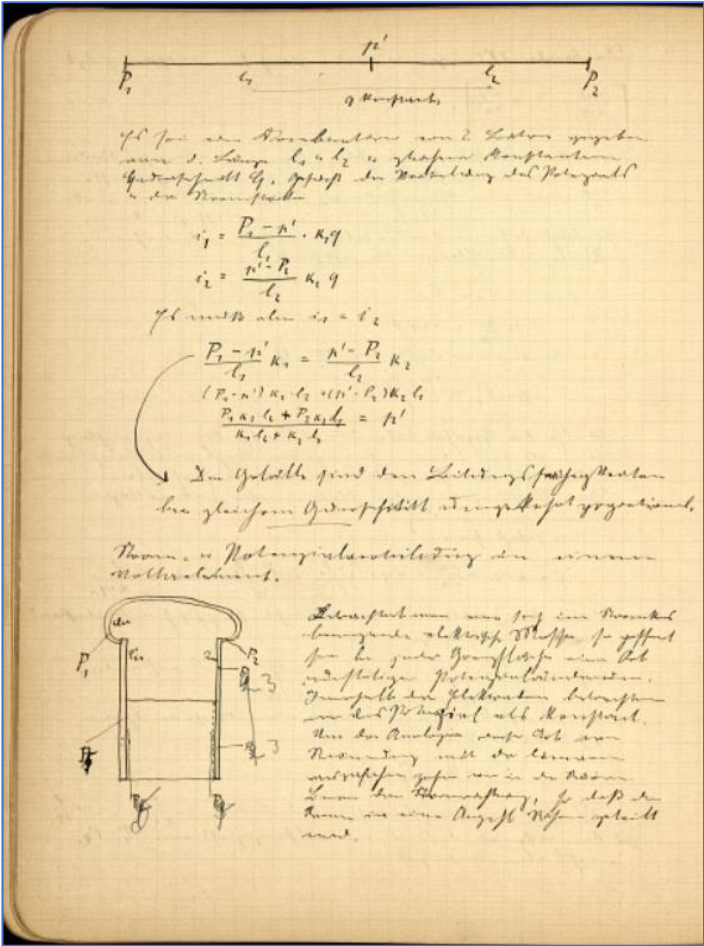 p'
P₁ l₁ l₂ P₂
q Konstant
Es sei eine Kombination von 2 Leitern gegeben
von d. Länge l₁ u l₂ u gleichem Konstantem
Querschnitt q. Gesucht die Verteilung des Potenzials
u der Stromstärke
i₁ = (P₁ − p')/l₁ · κ₁ q
i₂ = (p' − P₂)/l₂ κ₂ q
Es muß aber i₁ = i₂
(P₁ − p')/l₁ κ₁ = (p' − P₂)/l₂ κ₂
(P₁ − p') κ₁ l₂ = (p' − P₂) κ₂ l₁
(P₁ κ₁ l₂ + P₂ κ₂ l₁)/(κ₁ l₂ + κ₂ l₁) = p'
Die Gefälle sind den Leitungsfähigkeiten
bei gleichem Querschnitt umgekehrt proportional.
Strom- u Potenzialverteilung in einem
Voltaelement.
P₁ P₂
3
3
Betrachtet man eine sich im Stromkreis
bewegende elektrische Masse, so
sie bei jeder Grenzfläche eine Art
Potenzialänderung.
Innerhalb der Elektroden betrachten
wir das Potenzial als Konstant.
Um die Analogie dieser Art von
Strömung mit der linearen
wir in der
Linien der Stromrichtung, so daß der
Strom in eine Anzahl Röhren geteilt
wird.